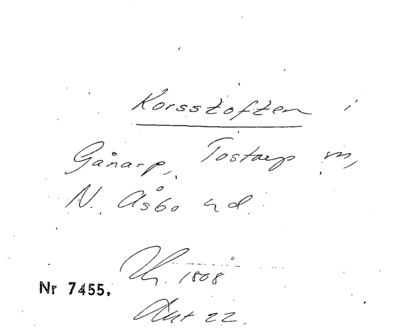 Korsstoften i
Gånarp, Tostarp m,
N. Åsbo hd.
Nr 7455.
1808
Akt 22.